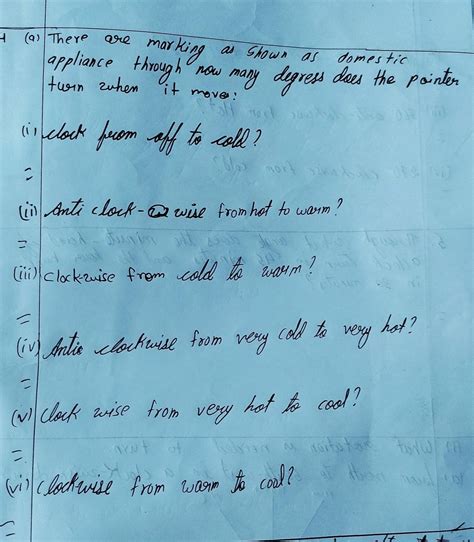 (a) There are marking as shown as domestic
appliance through now many degress does the pointer
turn when it move:
(i) clock from off to cold?
=
(ii) Anti clock- wise from hot to warm?
=
(iii) clock-wise from cold to warm?
=
(iv) Antic clockwise from very cold to very hot?
=
(v) clock wise from very hot to cool?
=
(vi) clockwise from warm to cool?
=